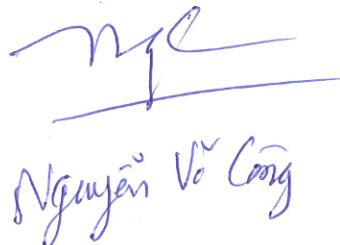 Nguyễn Võ Công